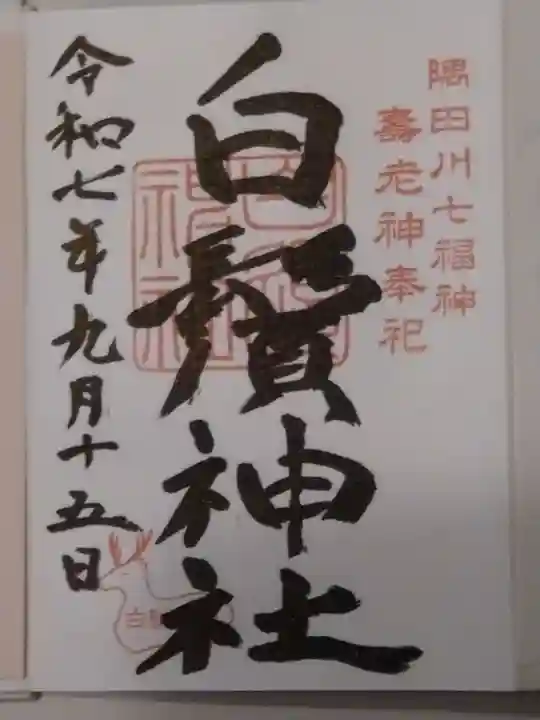 隅田川七福神
壽老神奉祀
白鬚神社
令和七年九月十五日